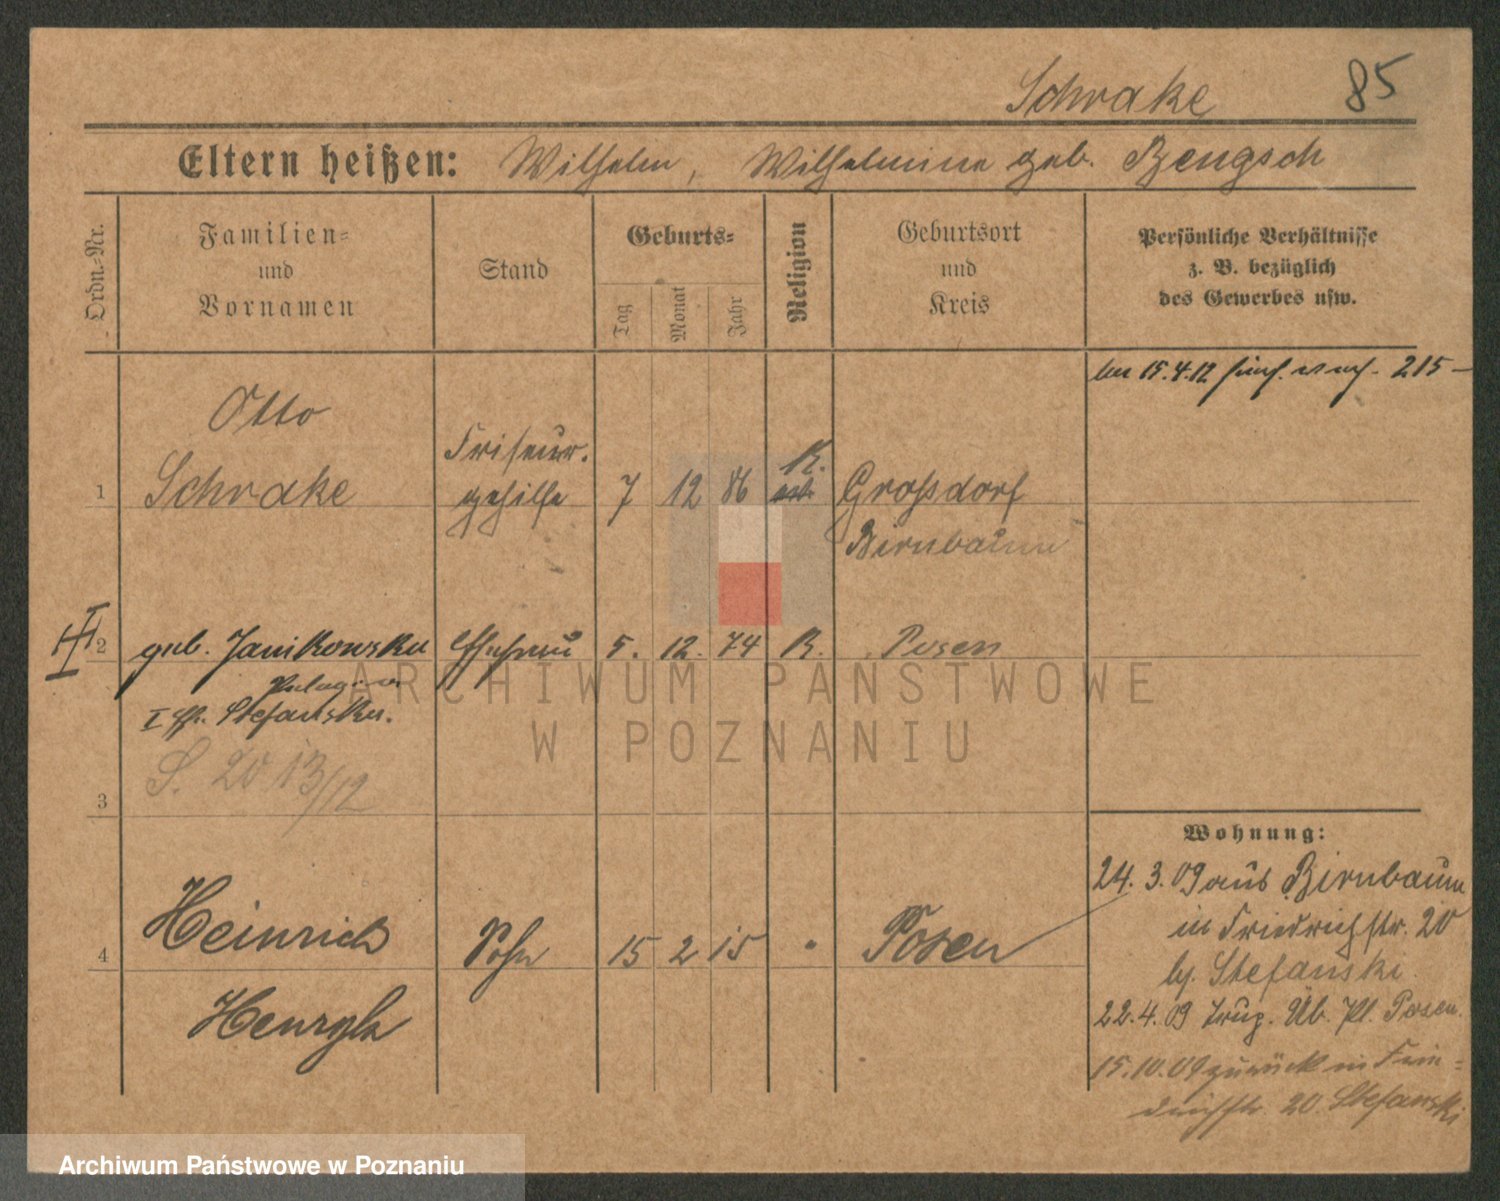 Schrake 85
Eltern heißen: Wilhelm, Wilhelmine geb. Bengsch
Ordn.-Nr.
Familien-
und
Vornamen
Stand
Geburts-
Tag
Monat
Jahr
Religion
Geburtsort
und
Kreis
Persönliche Verhältnisse
z. B. bezüglich
des Gewerbes usw.
15.4.12 215-
Otto
1 Schrake Friseur-
gehilfe 7 12 86 K. Großdorf
Birnbaum
2 geb. Janikowska Ehefrau 5. 12. 74 K. Posen
Pelagia
I Eh. Stefanska.
S. 20 13/12
3
4 Heinrich Sohn 15 2 15 Posen
Henryk
Wohnung:
24. 3. 09 aus Birnbaum
in Friedrichstr. 20
bj. Stefanski.
22.4.09 Trup. Üb. Pl. Posen.
15.10.09 zurück in Frie-
drichstr. 20. Stefanski
ARCHIWUM PAŃSTWOWE
W POZNANIU
Archiwum Państwowe w Poznaniu